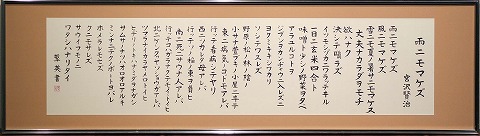 雨ニモマケズ
宮沢賢治
雨ニモマケズ
風ニモマケズ
雪ニモ夏ノ暑サニモマケズ
丈夫ナカラダヲモチ
欲ハナク
決シテ瞋ラズ
イツモシヅカニワラッテヰル
一日ニ玄米四合ト
味噌ト少シノ野菜ヲタベ
アラユルコトヲ
ジブンヲカンジョウニ入レズニ
ヨクミキキシワカリ
ソシテワスレズ
野原ノ松ノ林ノ蔭ノ
小サナ萱ブキノ小屋ニヰテ
東ニ病気ノコドモアレバ
行ッテ看病シテヤリ
西ニツカレタ母アレバ
行ッテソノ稲ノ束ヲ負ヒ
南ニ死ニサウナ人アレバ
行ッテコハガラナクテモイイトイヒ
北ニケンクヮヤソショウガアレバ
ツマラナイカラヤメロトイヒ
ヒデリノトキハナミダヲナガシ
サムサノナツハオロオロアルキ
ミンナニデクノボートヨバレ
ホメラレモセズ
クニモサレズ
サウイフモノニ
ワタシハナリタイ